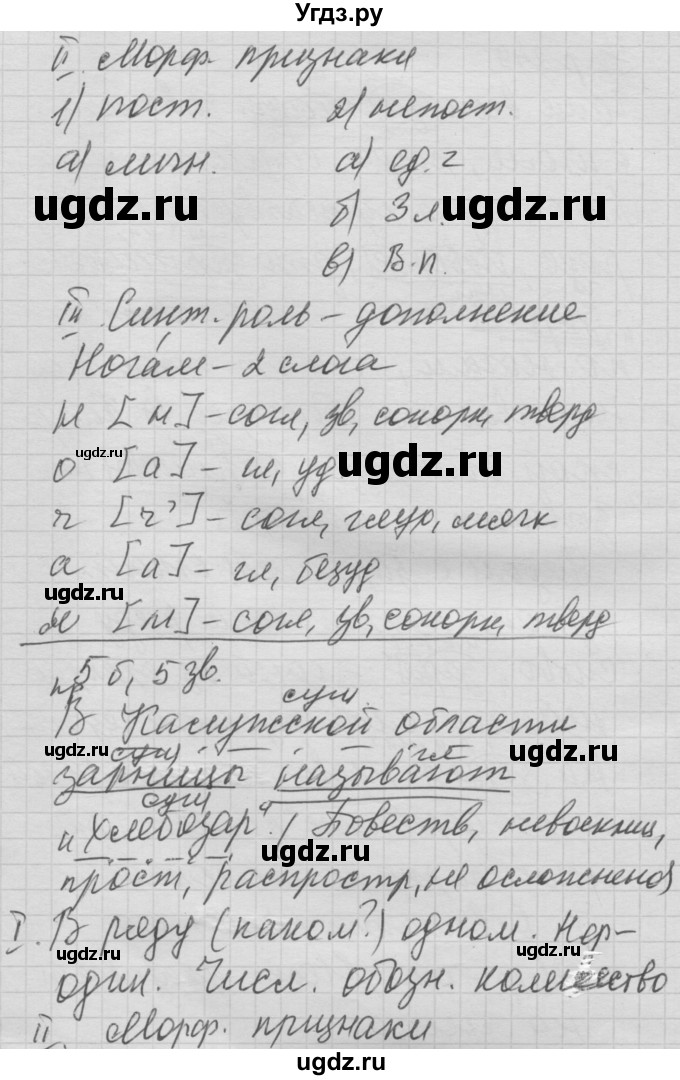 Угдз.ру
II. Морф. признаки
1) пост. 2) непост.
а) личн. а) ед. ч
ugdz.ru б) 3 л. ugdz.ru
в) В.п.
III. Синт. роль – дополнение
Ногам – 2 слога
н [н] – согл, зв, сонорн, тверд
ugdz.ru
о [а] – гл, уд ugdz.ru
ч [ч'] – согл, глух, мягк
а [а] – гл, безуд
ugdz.ru
м [м] – согл, зв, сонорн, тверд
5 б, 5 зв.
сущ.
В Калужской области
ugdz.ru сущ гл ugdz.ru
зарницы называют
сущ
„Хлебозар“. (Повеств, невоскниц,
ugdz.ru
прост, распростр, не осложнено)
I. В ряду (каком?) одном. Нор-
один. Числ. обозн. количество
II. Морф. признаки
ugdz.ru